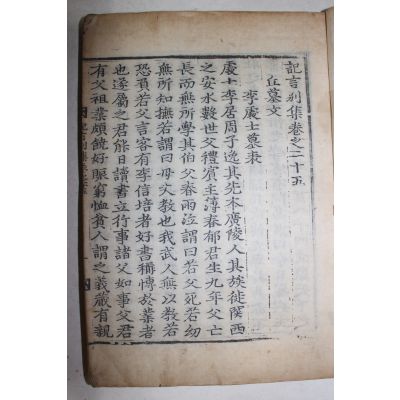 記言別集卷之二十五
丘墓文
李處士墓表
處士李居周子逸其先本廣陵人其族徙關西
之安水數世父禮賓主薄春郁君生九年父亡
長而無所學其伯父春雨泣謂曰若父死若幼
無所知撫若謂曰母父教也我武人無以教若
恐負若父言客有李信培者好書稱博於業者
也遂屬之君能日讀書立行事諸父如事父君
有父祖業頗饒好賑窮恤貧人謂之義藏有親